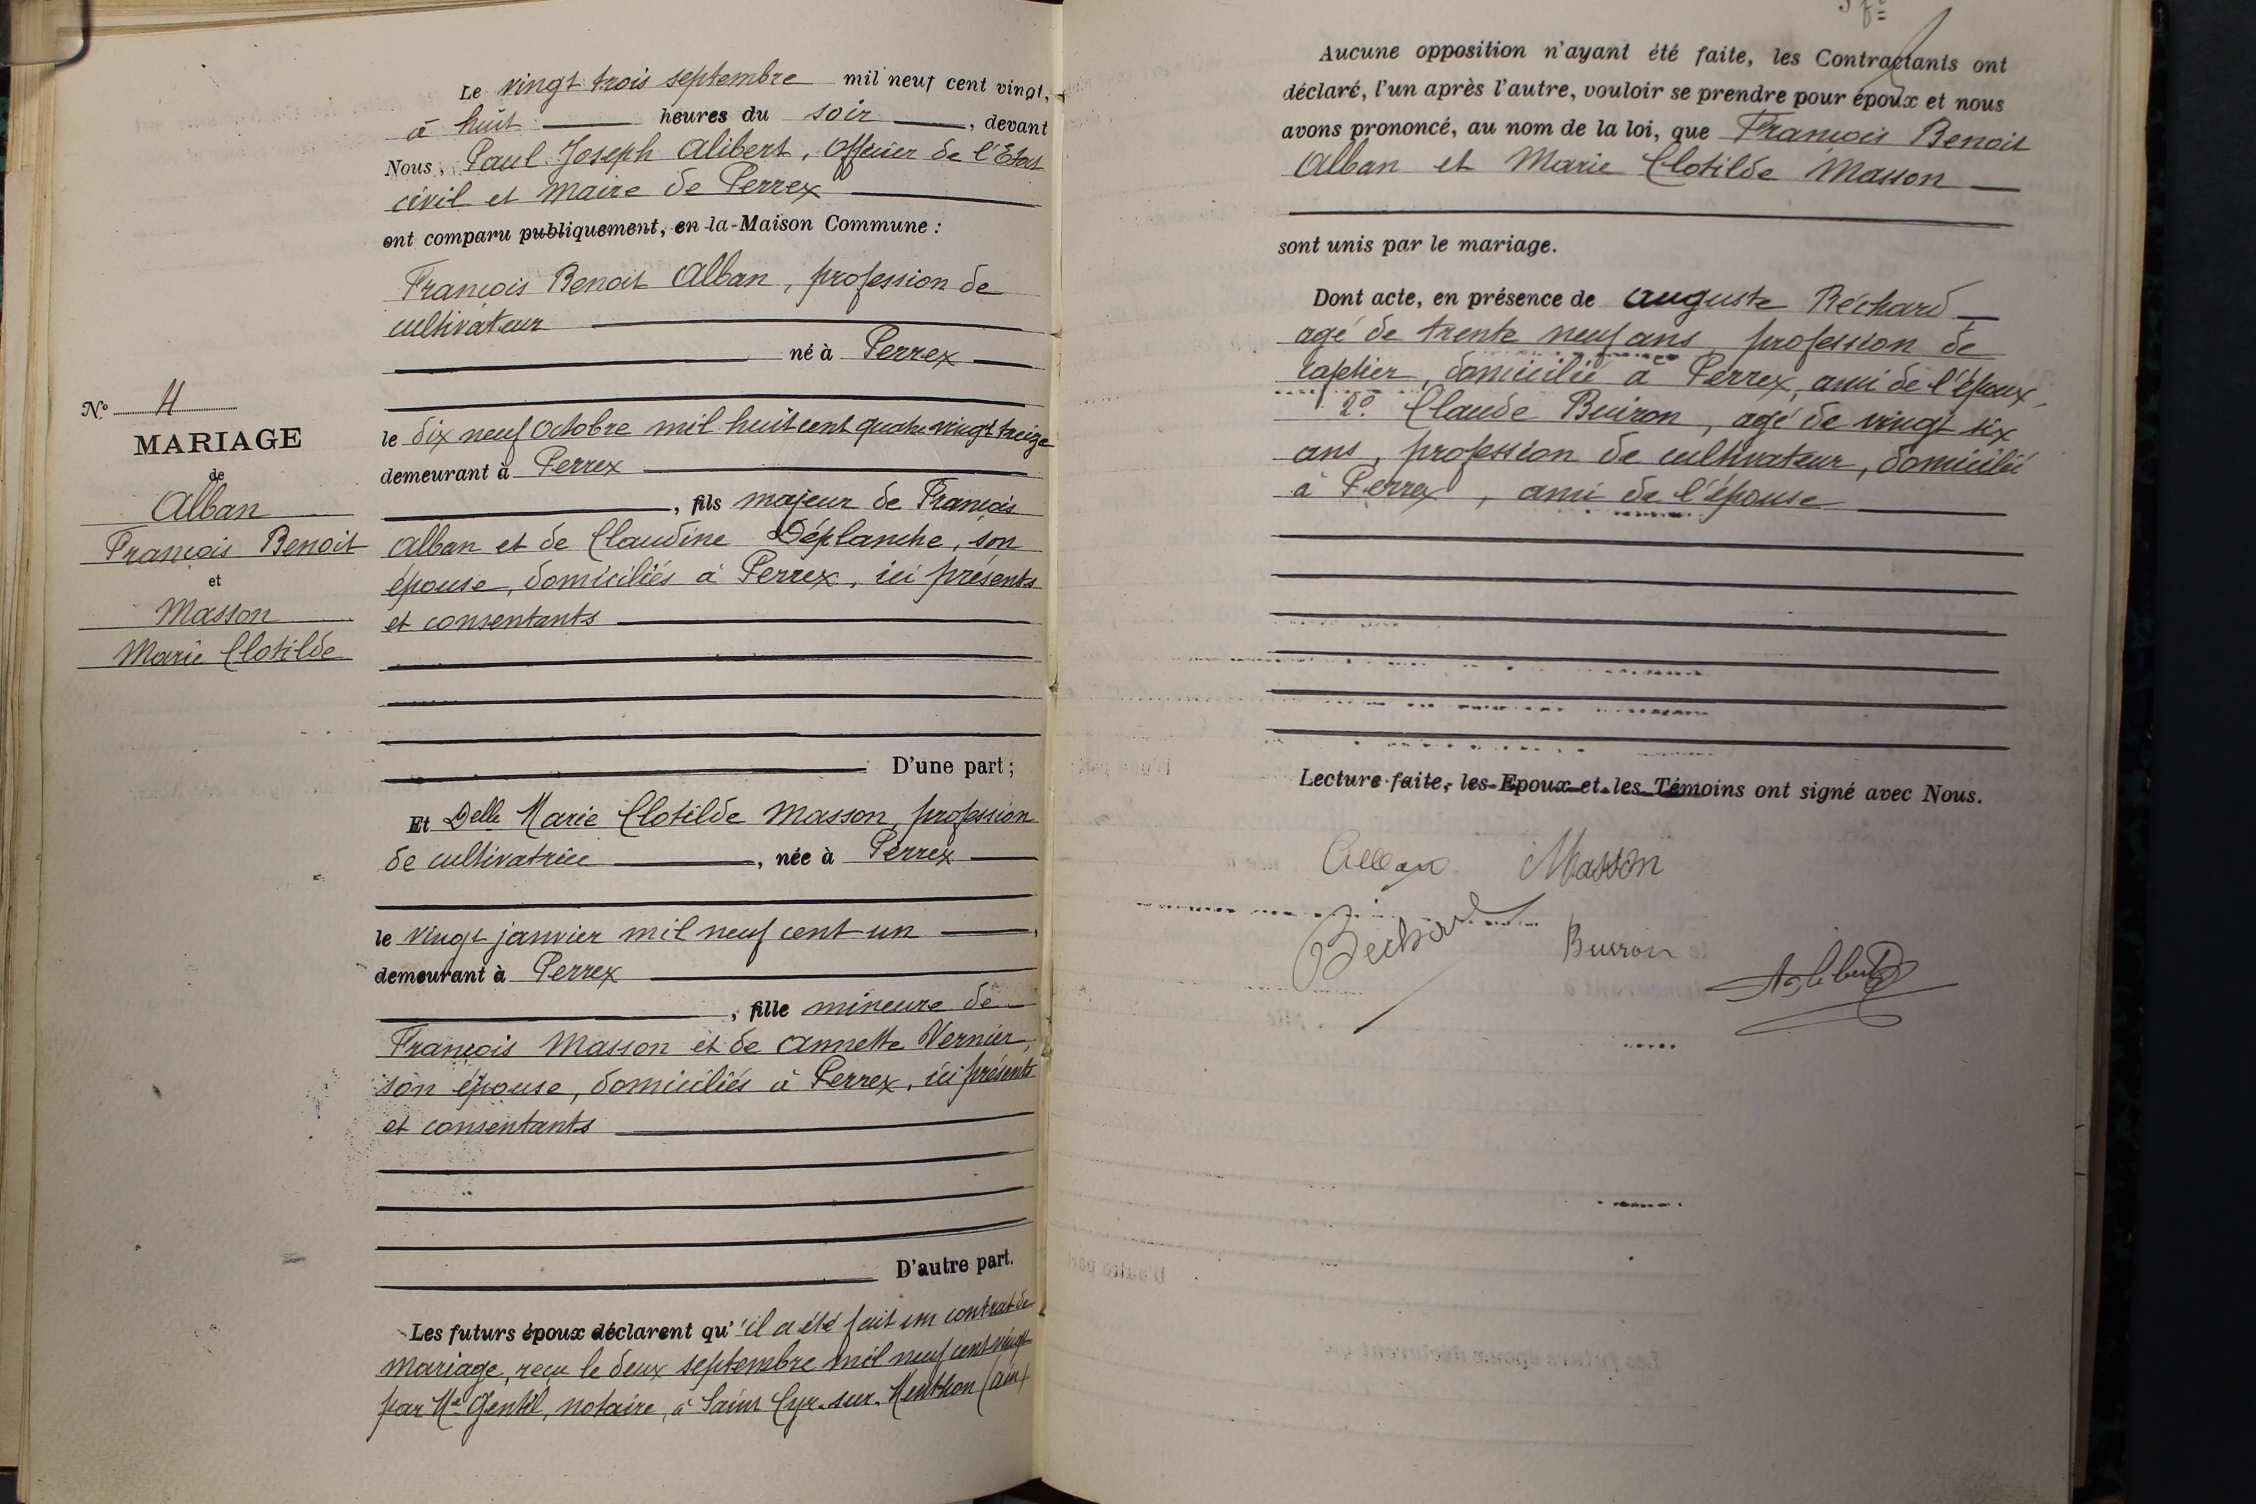 Le vingt trois septembre mil neuf cent vingt,
à huit heures du soir, devant
Nous, Paul Joseph Alibert, Officier de l'Etat
civil et Maire de Perrex
ont comparu publiquement, en la Maison Commune :
François Benoit Alban, profession de
cultivateur
né à Perrex
le dix neuf Octobre mil huit cent quatre vingt treize
demeurant à Perrex
, fils majeur de François
Alban et de Claudine Déplanche, son
épouse, domiciliés à Perrex, ici présents
et consentants
D'une part ;
Et Delle Marie Clotilde Masson, profession
de cultivatrice, née à Perrex
le vingt janvier mil neuf cent un,
demeurant à Perrex
, fille mineure de
François Masson et de Annette Vernier,
son épouse, domiciliés à Perrex, ici présents
et consentants
D'autre part.
Les futurs époux déclarent qu'il a été fait un contrat de
mariage, reçu le deux septembre mil neuf cent vingt
par Me Gentil, notaire, à Saint Cyr-sur-Menthon (Ain)
No 4
MARIAGE
de
Alban
François Benoit
et
Masson
Marie Clotilde
Aucune opposition n'ayant été faite, les Contractants ont
déclaré, l'un après l'autre, vouloir se prendre pour époux et nous
avons prononcé, au nom de la loi, que François Benoit
Alban et Marie Clotilde Masson
sont unis par le mariage.
Dont acte, en présence de Auguste Béchard
agé de trente neuf ans, profession de
cafetier, domicilié à Perrex, ami de l'époux,
2o Claude Buiron, agé de vingt six
ans, profession de cultivateur, domicilié
à Perrex, ami de l'épouse
Lecture faite, les Epoux et les Témoins ont signé avec Nous.
Alban Masson
Bechard Buiron
Alibert